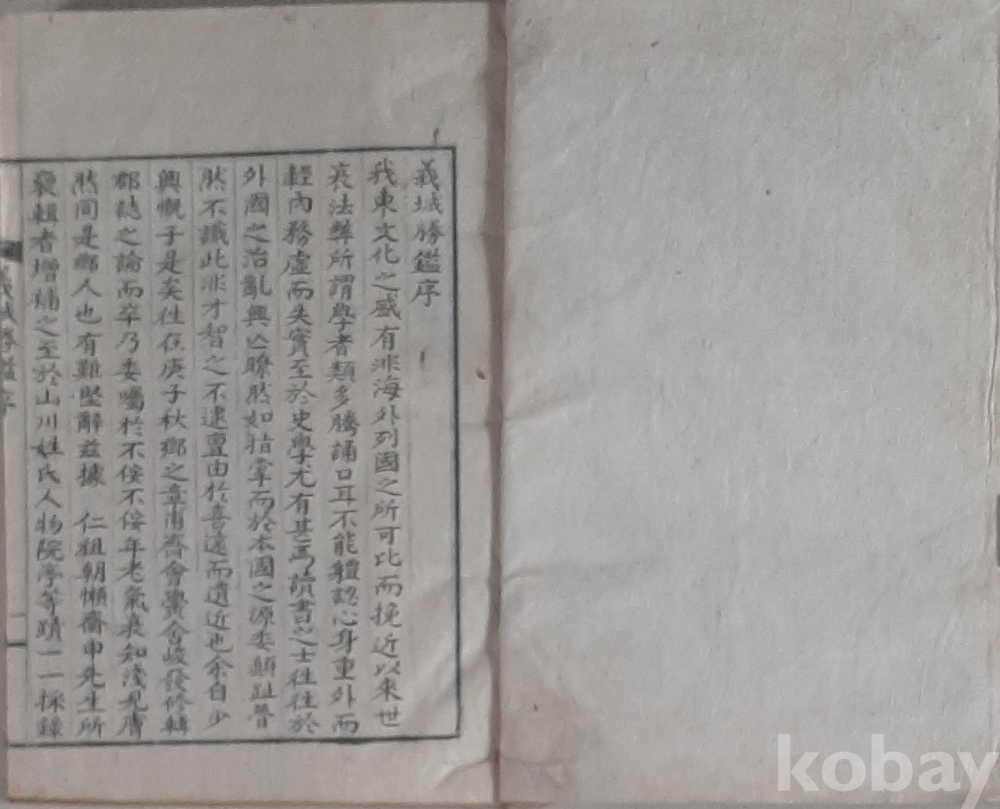 義城勝鑑序
我東文化之盛有非海外列國之所可比而挽近以來世
衰法弊所謂學者類多騰誦口耳不能軆認心身重外而
輕內務虛而失實至於史學尤有甚焉讀書之士往往於
外國之治亂興亡瞭然如指掌而於本國之源委顚趾昔
然不識此非才智之不逮亶由於喜遠而遺近也余自少
興慨于是矣往在庚子秋鄕之章甫齊會黌舍峻發修輯
郡誌之論而卒乃委囑於不佞不佞年老氣衰知淺見膚
然同是鄕人也有難堅辭玆據 仁祖朝懶齋申先生所
裒輯者增補之至於山川姓氏人物院亭等蹟一一採錄
義城勝鑑序
一
kobay